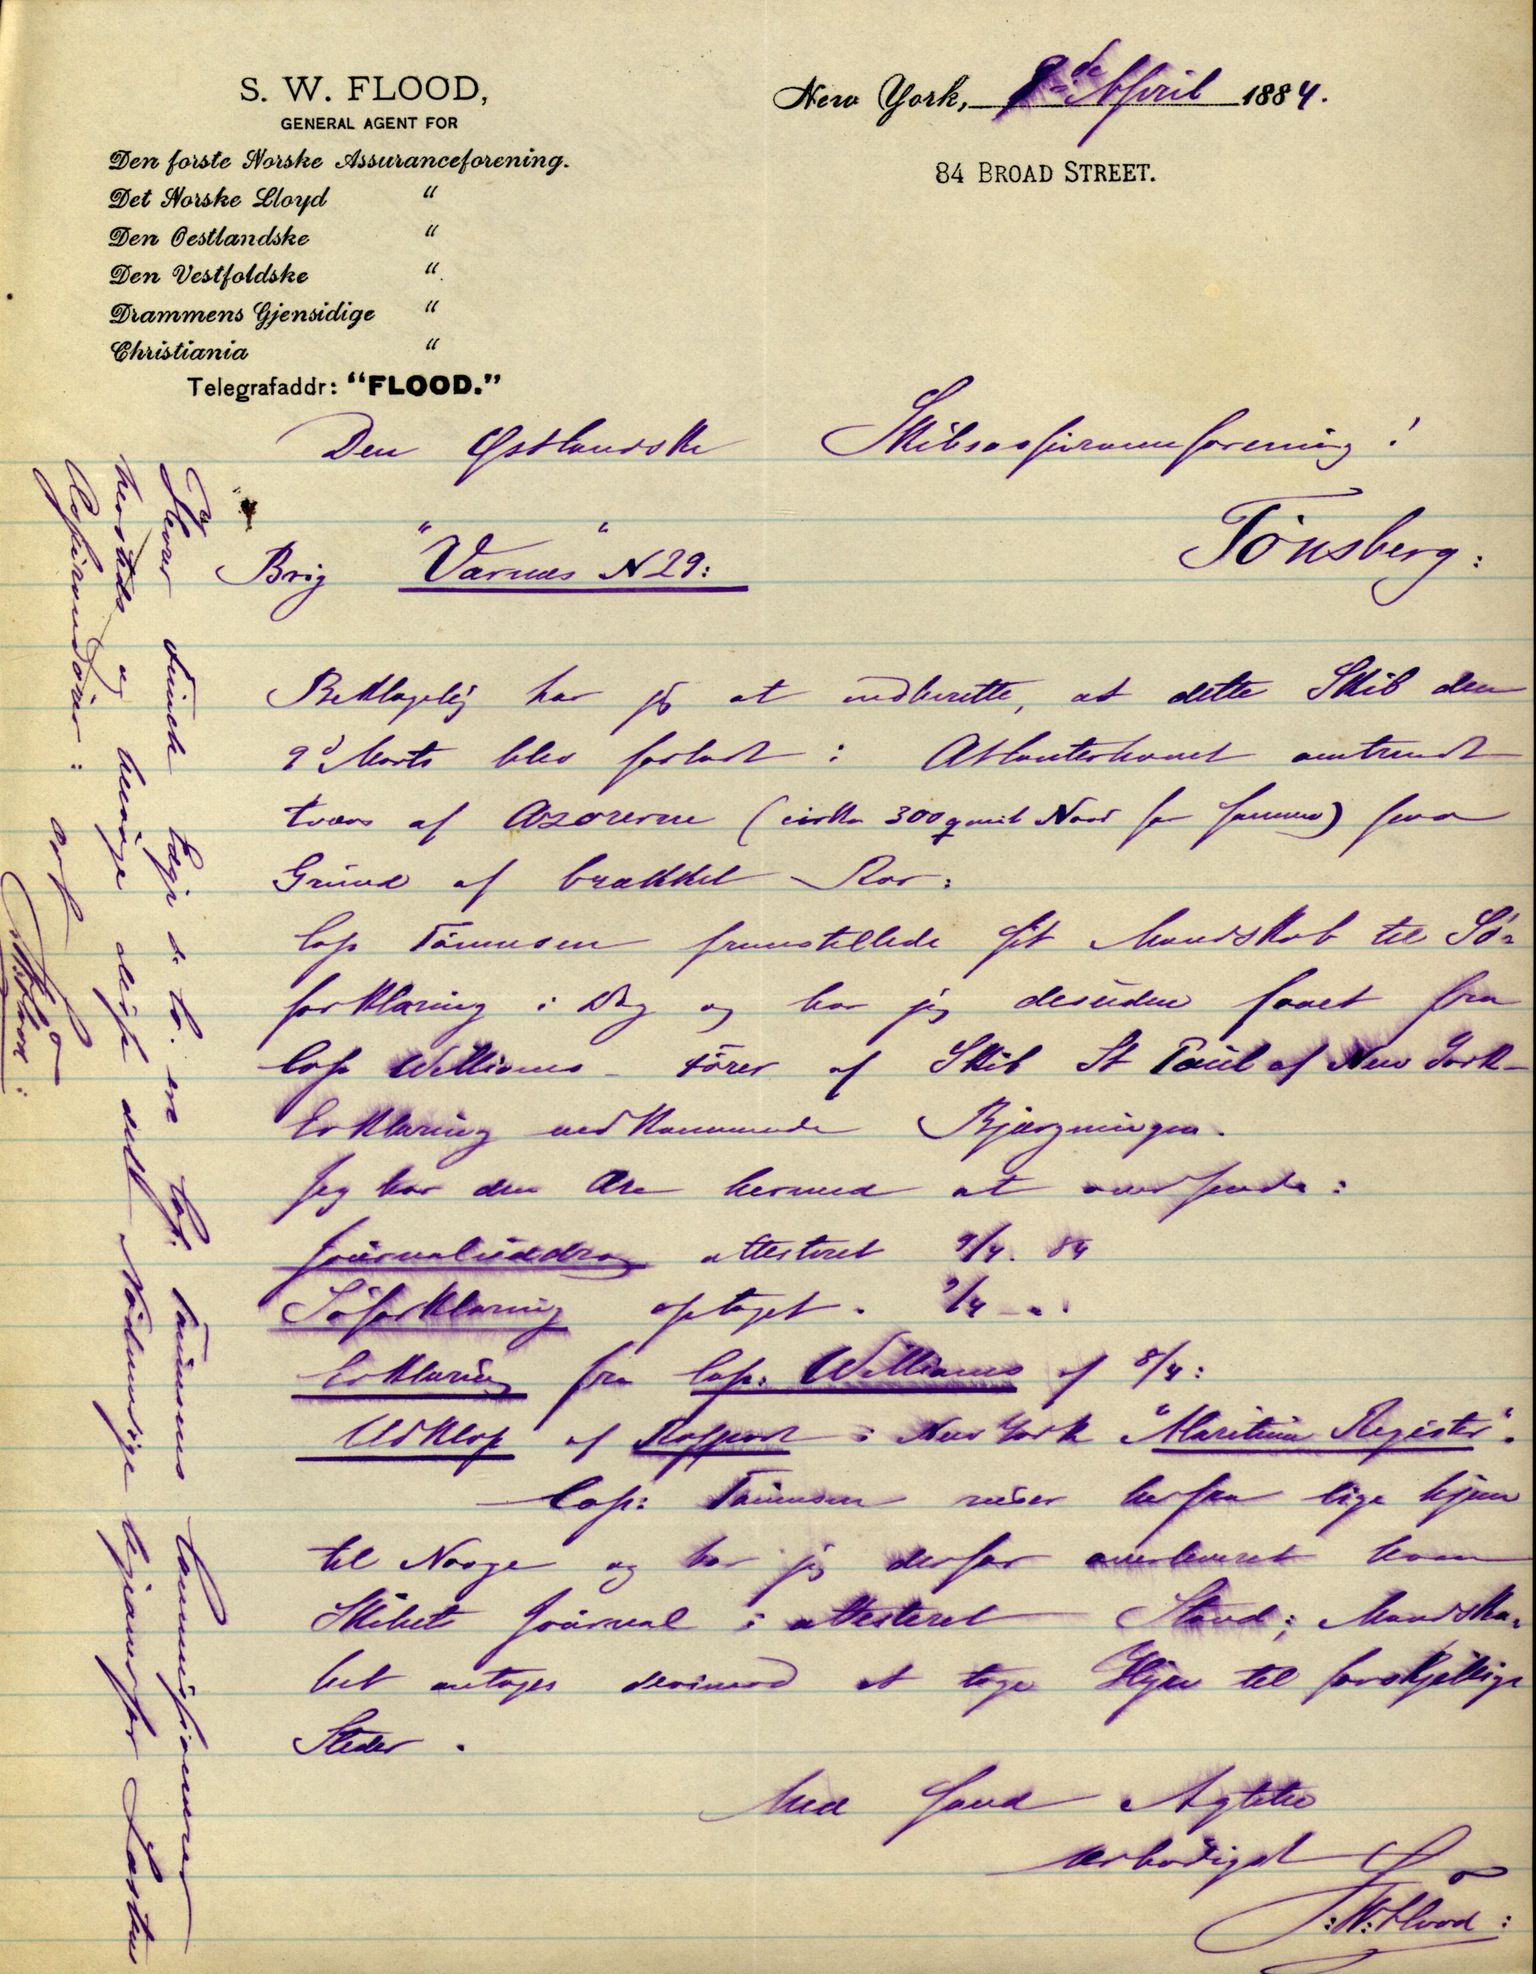 S. W. FLOOD,
GENERAL AGENT FOR
Den forste Norske Assuranceforening.
Det Norske Lloyd "
Den Oestlandske "
Den Vestfoldske "
Drammens Gjensidige "
Christiania "
Telegrafaddr: "FLOOD."
New York, 9de April 1884.
84 BROAD STREET.
Den Østlandske Skibsassuranceforening!
Tönsberg:
Brig "Varnæs" N 29:
Beklagelig har jeg at indberette, at dette Skib den
9d Marts blev forladt i Atlanterhavet omtrendt
tværs af Azorerne (cirka 300 qmil Nord for samme) paa
Grund af brækket Ror:
Cap Tönnesen fremstillede sit Mandskab til Sö-
forklaring i Dag og har jeg desuden faaet fra
Cap Williams - förer af Skib St Paul af New York -
Erklæring vedkommende Bjærgningen.
Jeg har den Ære hermed at oversende:
Journaluddrag attesteret 9/4. 84
Söforklaring optaget . 9/4 - " .
Erklæring fra Cap: Williams af 8/4:
Udklip af Rapport i New York "Maritime Register".
Cap: Tönnesen reiser herfra lige hjem
til Norge og har jeg derfor overleveret ham
Skibets Journal i attesteret Stand; Mandska-
bet antages derimod at tage Hyre til forskjellige
Steder .
Med sand Agtelse
ærbödigst
S: W: Flood:
til Cap: Tönnesens
og övrige
nödvendige